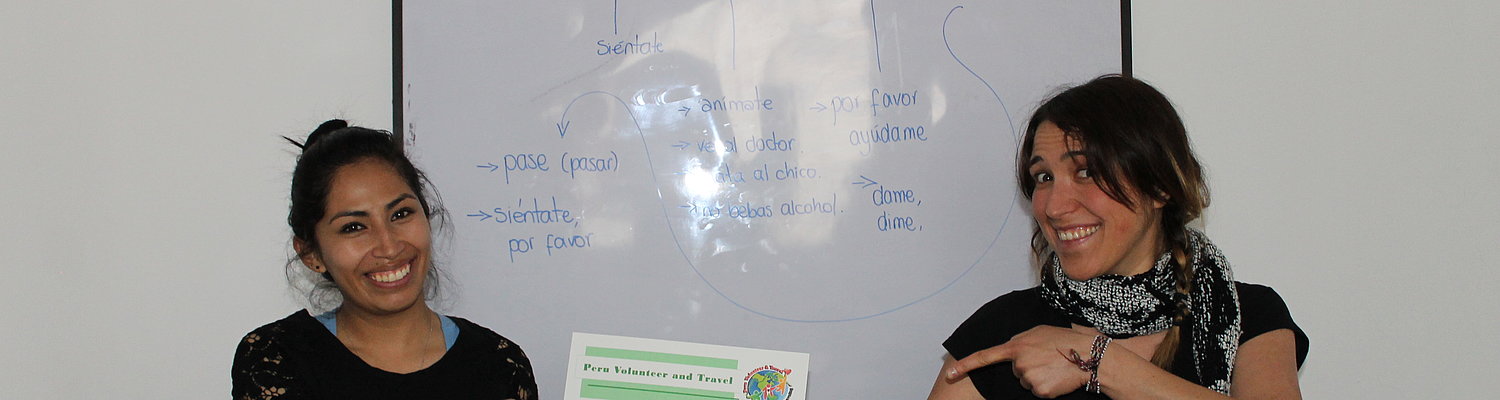 siéntate
→ pase (pasar)
→ siéntate,
por favor
→ anímate
→ ve al doctor.
→ al chico.
→ no bebas alcohol.
→ por favor
ayúdame
→ dame,
dime,
Peru Volunteer and Travel